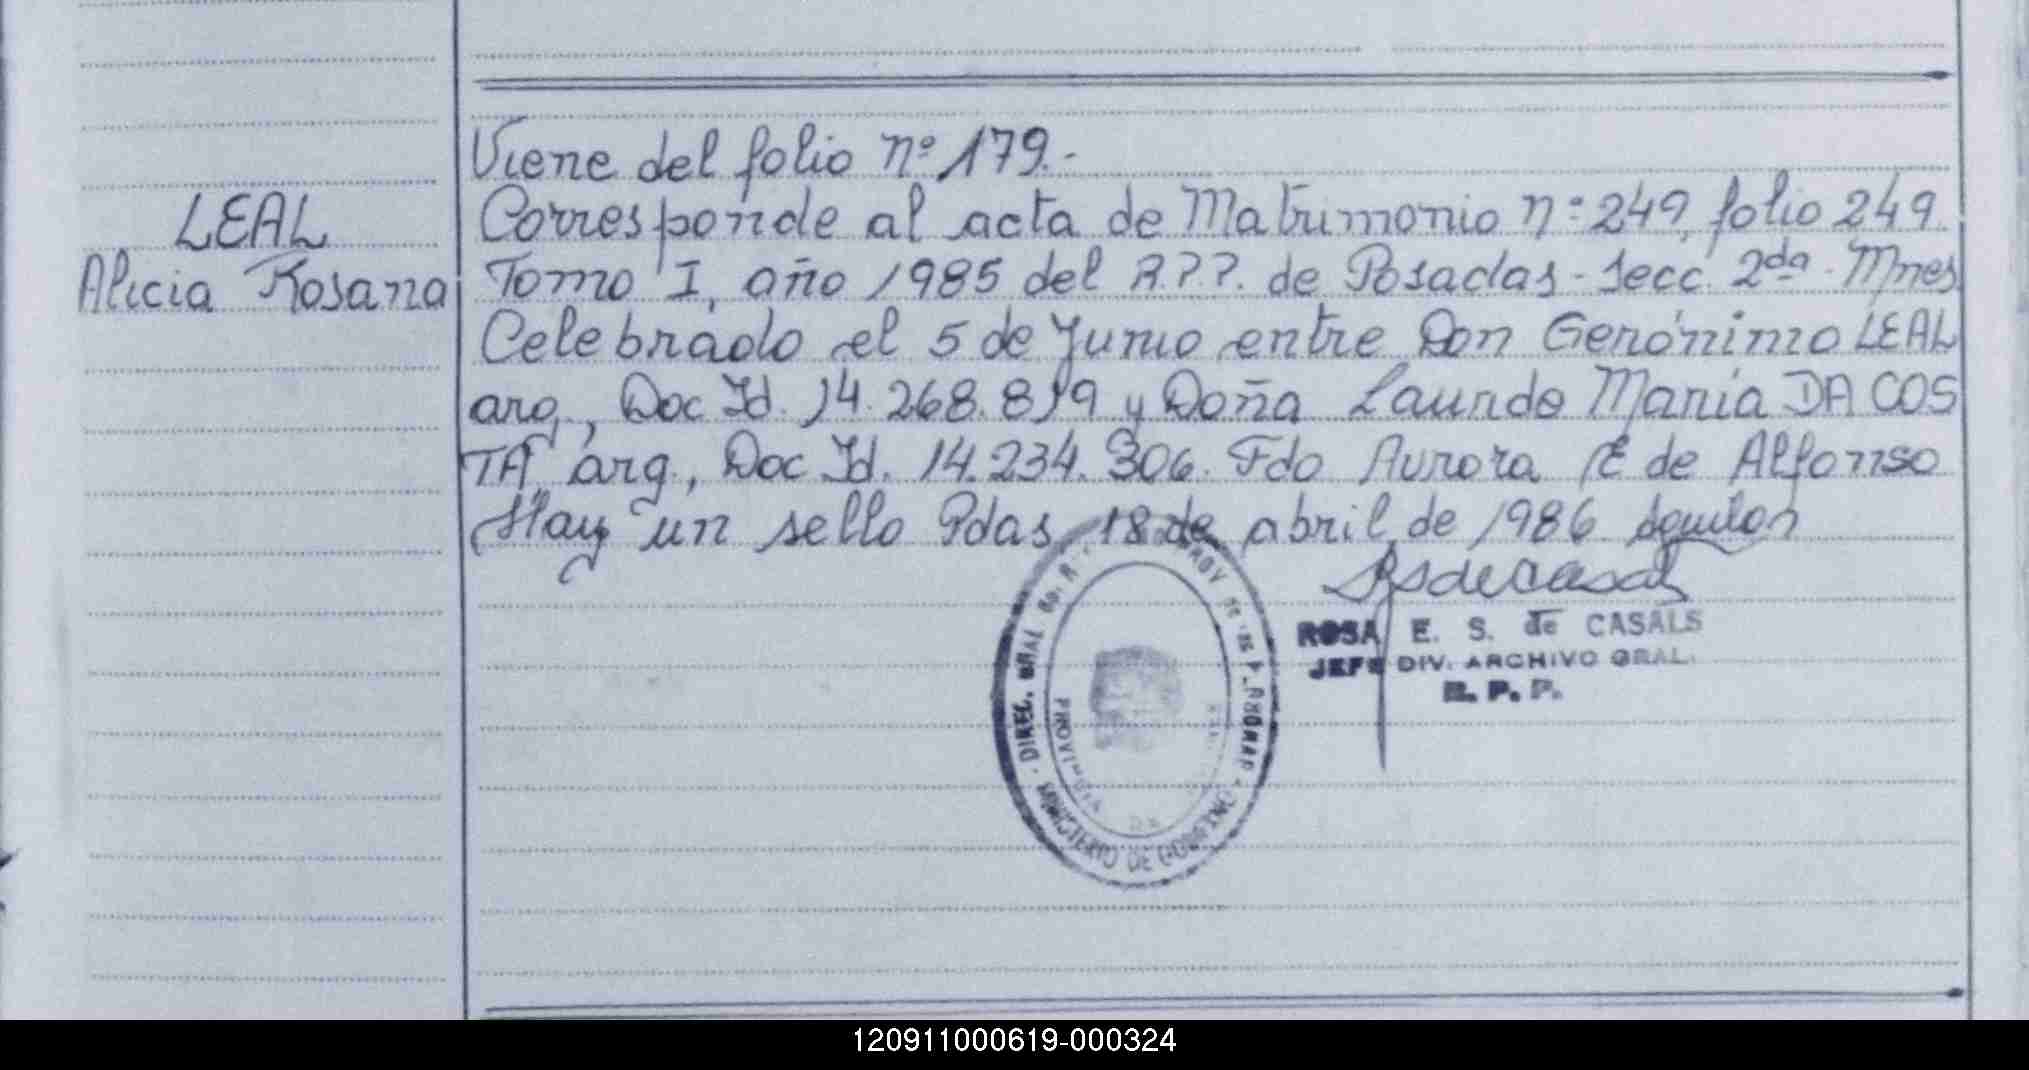 Viene del folio nº 179.-
LEAL
Alicia Rosana
Corresponde al acta de Matrimonio nº 249, folio 249
Tomo I, año 1985 del R.P.P. de Posadas - Secc. 2da. Mnes
Celebrado el 5 de Junio entre Don Gerónimo LEAL
arg., Doc Id. 14.268.819 y Doña Maria DA COS
TA arg., Doc Id. 14.234.306. Fdo Aurora E de Alfonso
Hay un sello Pdas, 18 de abril de 1986
ROSA E. S. de CASALS
JEFE DIV. ARCHIVO GRAL.
R. P. P.
MINISTERIO DE GOBIERNO
DIREC. GRAL
PROVINCIA DE
120911000619-000324